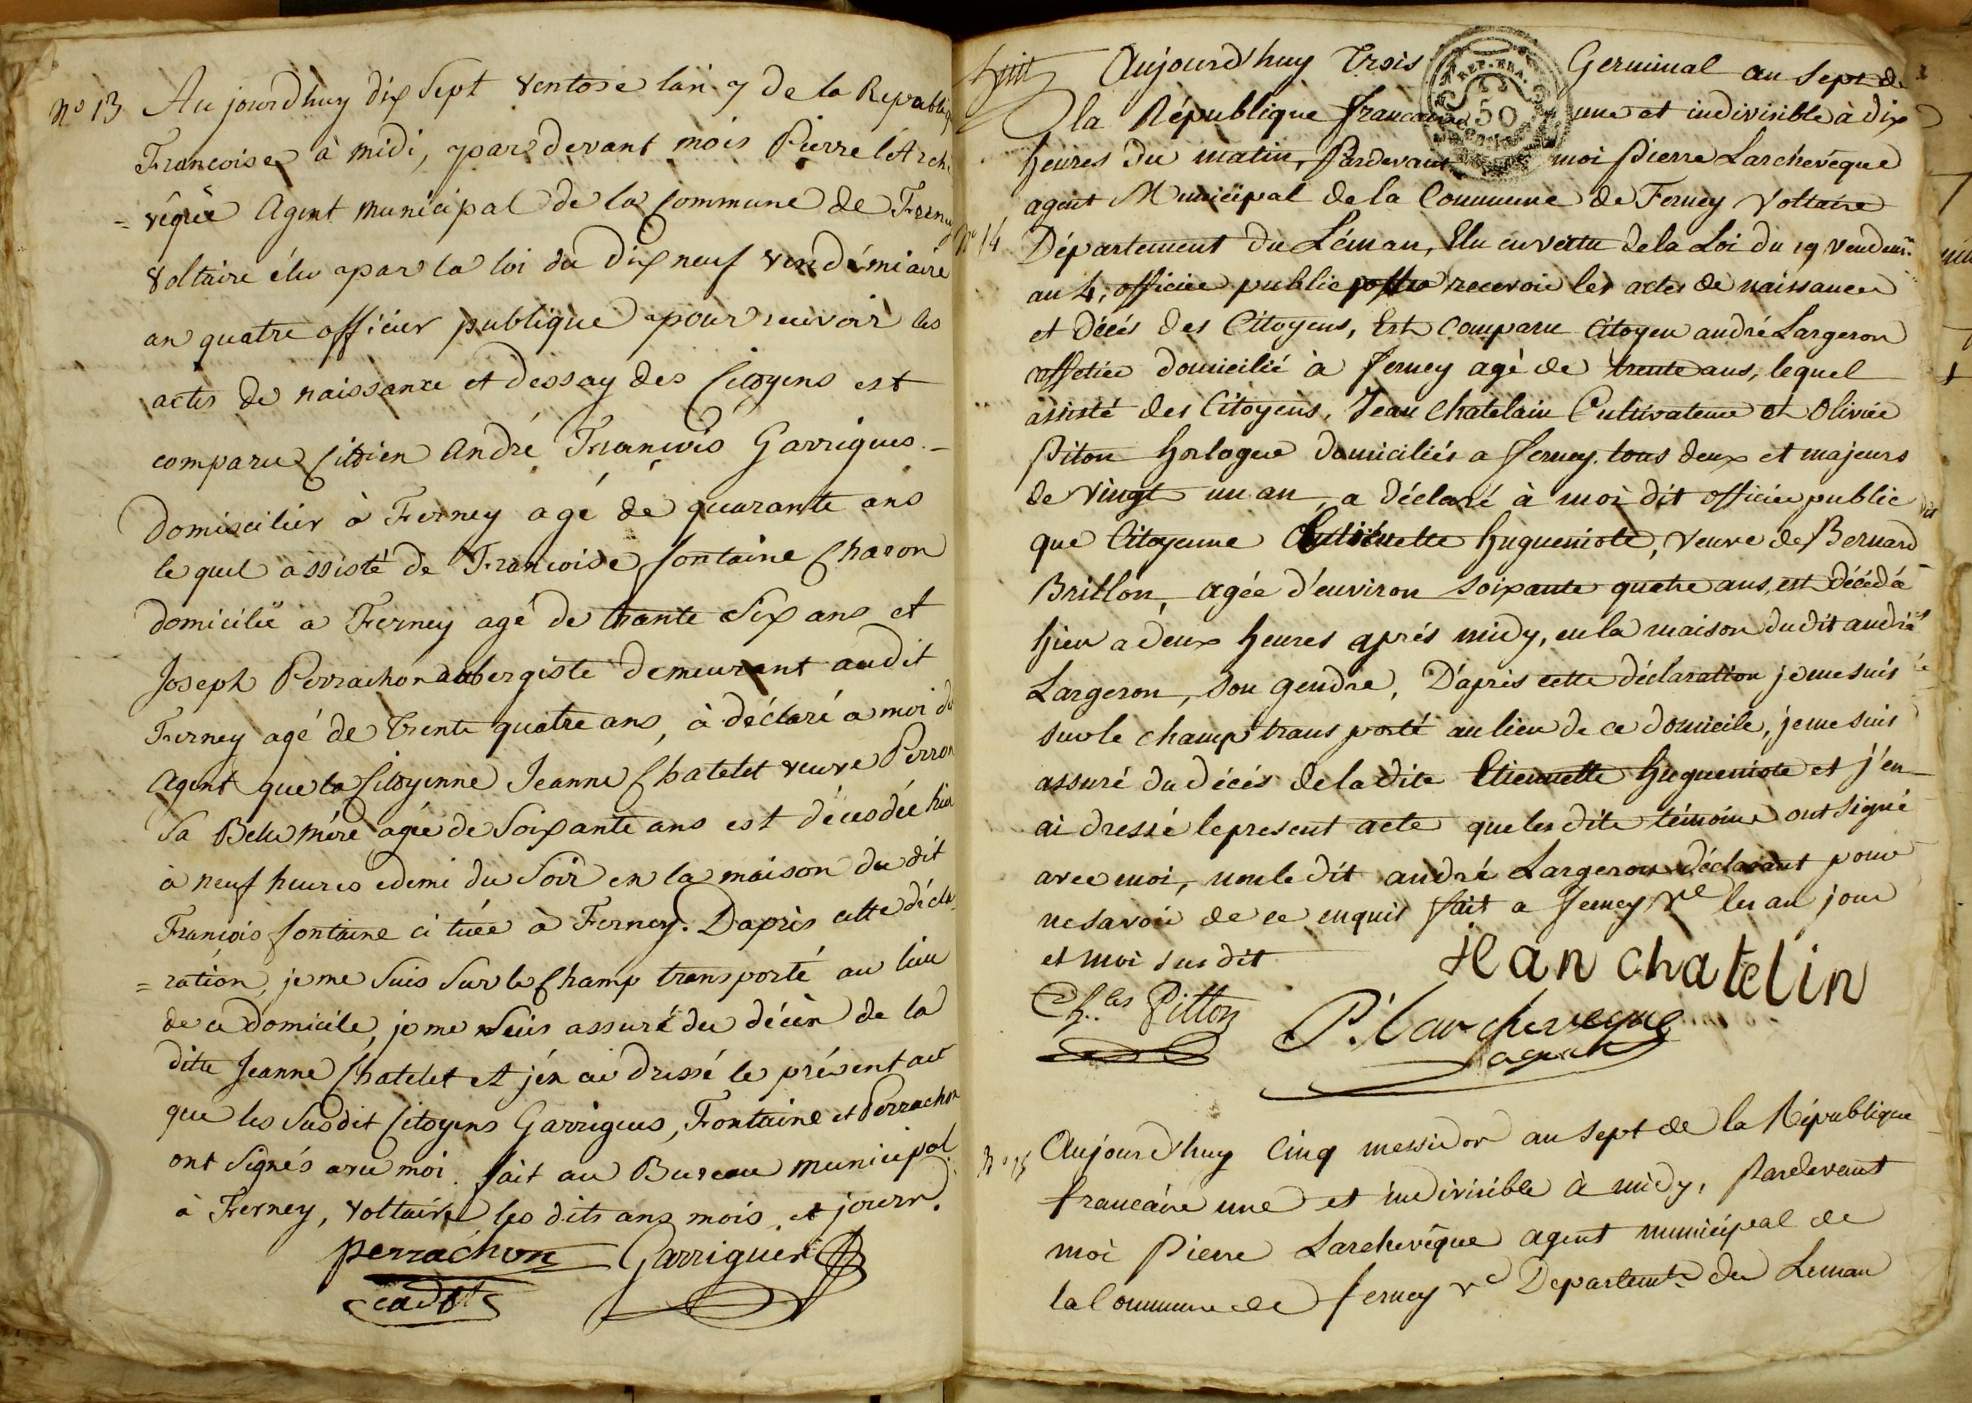 No 13 Aujourdhuy dix Sept Ventose lan 7 de la Republiq
Francoise à midi, par devant mois Pierre l'Arch
= vêque Agent municipal de la Commune de Ferney
Voltaire élu par la loi du Dix neuf vendémiaire
an quatre officier publique pour recevoir les
actes de naissance et dessay des Citoyens est
comparu Citoien André Francois Garrigues.
domiscilier à Ferney agé de quarante ans
lequel assisté de Francoise fontaine Charon
domicilié a Ferney agé de trante Six ans et
Joseph Perrachon aubergiste demeurant audit
Ferney agé de trente quatre ans, à déclaré a moi d
Agent que la Citoyenne Jeanne Chatelet veuve Perron
Sa Belle mére agée de Soixante ans est décédée hier
à neuf heures edemi du Soir en la maison du dit
Francois fontaine cituée à Ferney. Dapris cette décla
= ration, je me Suis Sur le Champ transporté au lieu
de ce domicile, je me Suis assuré du décèn de la
ditte Jeanne Chatelet et j'én ai dressé le présent act
que les Susdit Citoyens Garrigues, Fontaine et Perrachon
ont Signés avec moi. fait au Bureau municipal
à Ferney, Voltaire les dits ans mois, et jours.
perrachon Garrigues
Aujourd'huy Trois Germinal an Sept de
REP. FRA.
50
la République francaise une et indivisible à dix
heures du matin, Pardevant moi Pierre Larchevêque
agent Municipal de la Commune de Ferney Voltaire
No 14 Département du Léman, Elu en vertu de la Loi du 19 Vendem.re
an 4, officier public pour recevoir les actes de naissance
et décés des Citoyens, Est comparu Citoyen andré Largeron
caffetier domicilié à ferney agé de trente ans, lequel
assisté des Citoyens, Jean Chatelain Cultivateur et Olivier
Piton horloger domiciliés a ferney, tous deux et majeurs
de vingt un an, a déclaré à moi dit officier public
que Citoyenne Etiennette hugueniote, Veuve de Bernard
Brillon, agée d'environ soixante quatre ans, est décédé
hier a deux heures aprés midy, en la maison du dit andré
Largeron, son gendre, D'apris cette déclaration je me suis
sur le champ trans porté au lieu de ce domicile, je me suis
assuré du décés de la dite Etiennette hugueniote et j'en
ai dressé le present acte que les dits témoins ont signé
avec moi, non le dit andré Largeron déclarant pour
ne savoir de ce enquis fait a ferney Ve les an jour
et moi susdit
Jean chatelin
Ch.les Pitton
P. Larcheveque
agent
No 15 Aujourd'huy Cinq messidor an sept de la République
francaise une et indivisible à midy, Pardevant
moi Pierre Larchevêque agent municipal de
la Commune de ferney Ve Departemt. du Leman